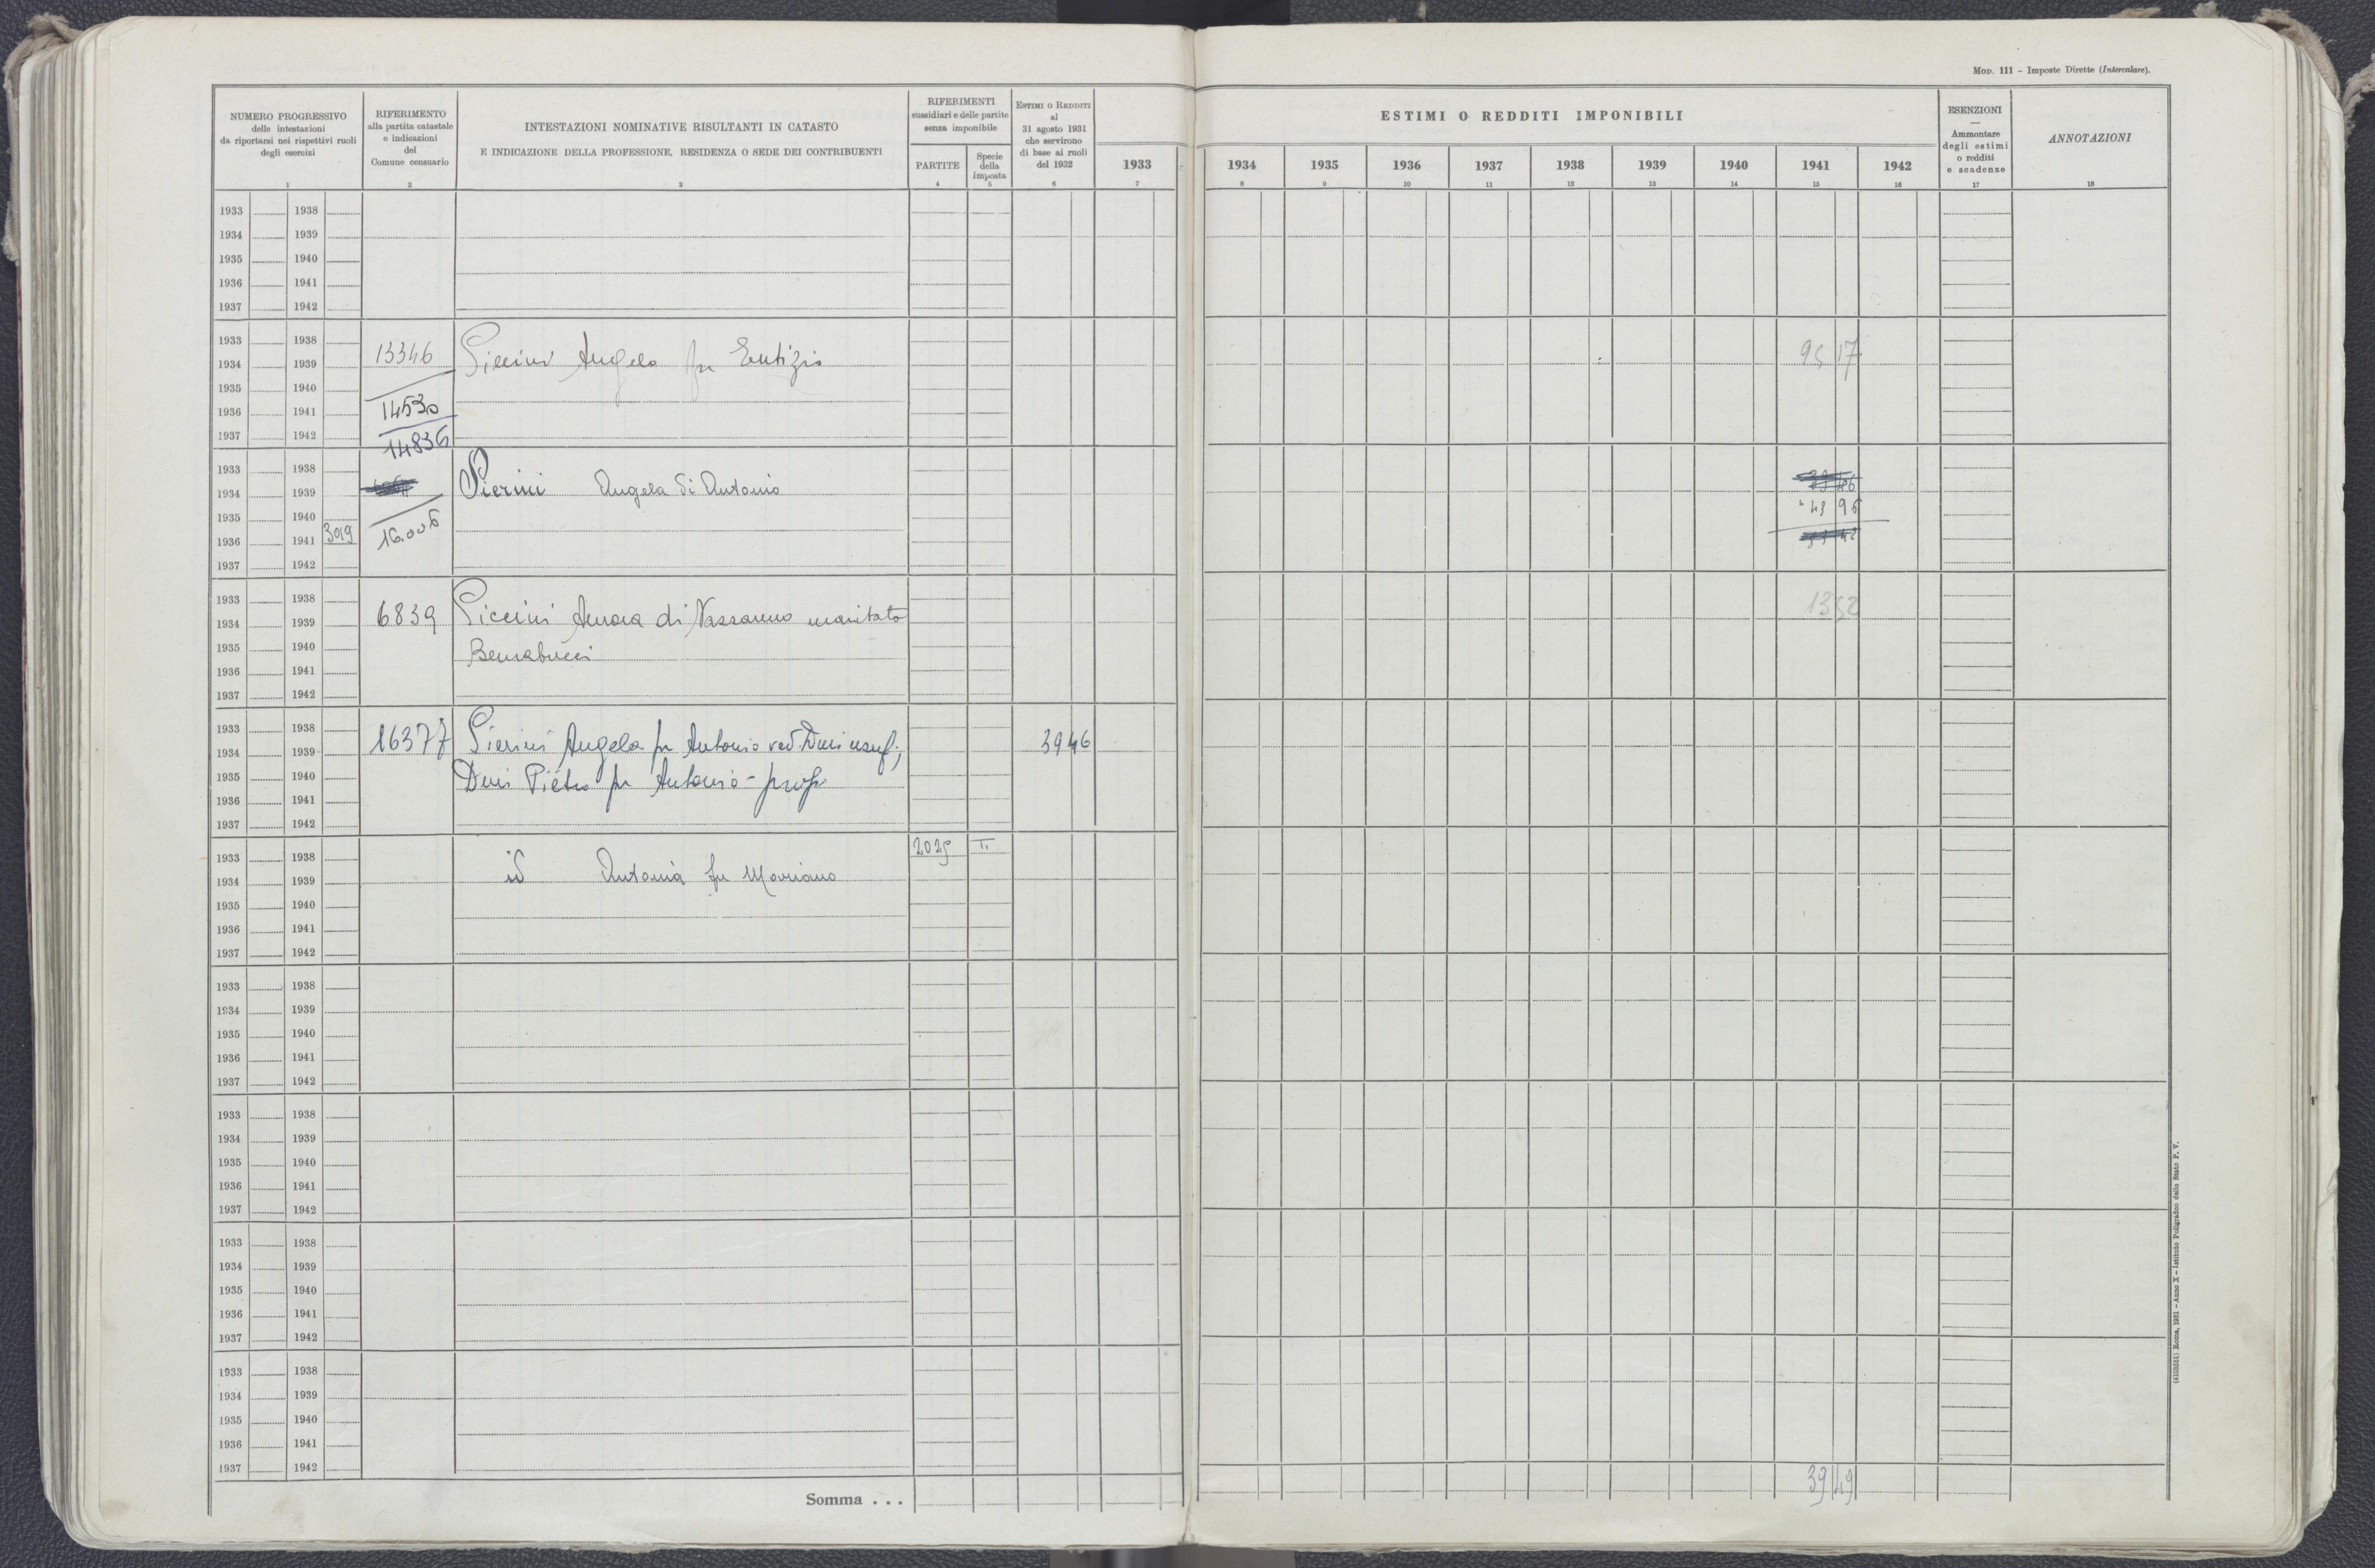 Mod. 111 – Imposte Dirette (Intercalare).
NUMERO PROGRESSIVO
delle intestazioni
da riportarsi nei rispettivi ruoli
degli esercizi
1
RIFERIMENTO
alla partita catastale
e indicazioni
del
Comune censuario
2
INTESTAZIONI NOMINATIVE RISULTANTI IN CATASTO
E INDICAZIONE DELLA PROFESSIONE, RESIDENZA O SEDE DEI CONTRIBUENTI
3
RIFERIMENTI
sussidiari e delle partite
senza imponibile
PARTITE
4
Specie
della
imposta
5
Estimi o Redditi
al
31 agosto 1931
che servirono
di base ai ruoli
del 1932
6
1933
7
ESTIMI O REDDITI IMPONIBILI
1934 1935 1936 1937 1938 1939 1940 1941 1942
8 9 10 11 12 13 14 15 16
ESENZIONI
—
Ammontare
degli estimi
o redditi
e scadenze
17
ANNOTAZIONI
18
1933 1938
1934 1939
1935 1940
1936 1941
1937 1942
1933 1938
1934 1939 13346 Angelo fu Eutizio 95 17
1935 1940
1936 1941 14530
1937 1942 14836
1933 1938
1934 1939 Pierini Angela di Antonio
1935 1940 43 96
1936 1941 3019 16006
1937 1942
1933 1938
1934 1939 6839 Piccini di Nazzareno maritata 13 52
1935 1940
1936 1941
1937 1942
1933 1938
1934 1939 16377 Pierini Angela fu Antonio ved. Duri usuf.; 39 46
1935 1940 Duri Pietro fu Antonio - propr
1936 1941
1937 1942
1933 1938 2025 T.
1934 1939 id Antonia fu Mariano
1935 1940
1936 1941
1937 1942
1933 1938
1934 1939
1935 1940
1936 1941
1937 1942
1933 1938
1934 1939
1935 1940
1936 1941
1937 1942
1933 1938
1934 1939
1935 1940
1936 1941
1937 1942
1933 1938
1934 1939
1935 1940
1936 1941
1937 1942
Somma . . . 39 49
(4103531) Roma, 1931 – Anno X – Istituto Poligrafico dello Stato P. V.